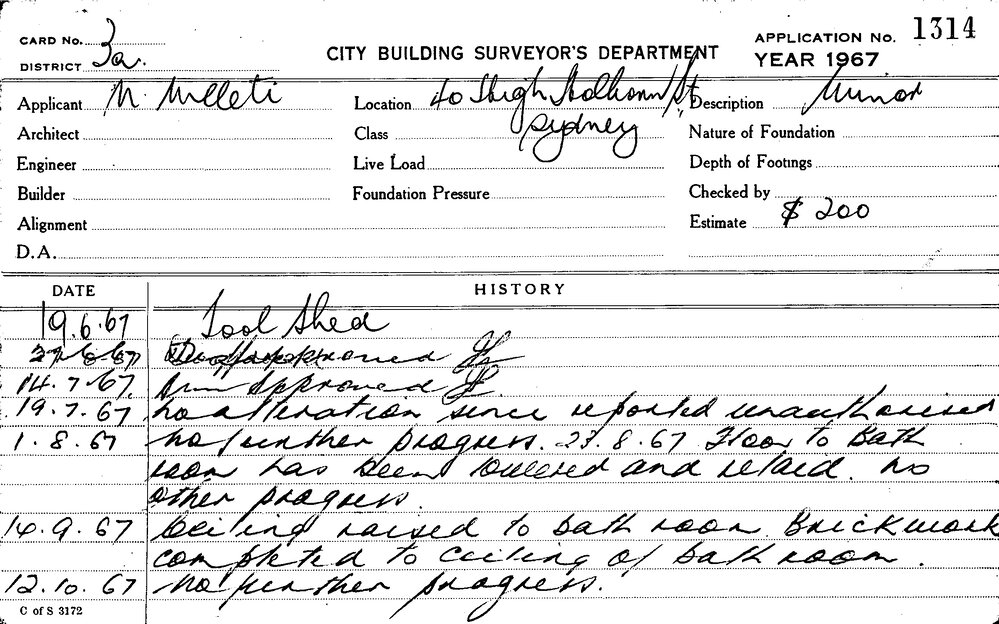 CARD No. 3
DISTRICT 3a.
CITY BUILDING SURVEYOR'S DEPARTMENT
APPLICATION No. 1314
YEAR 1967
Applicant N. Milleti
Location 40 High Holborn St
Sydney
Description Minor
Architect
Class
Nature of Foundation
Engineer
Live Load
Depth of Footings
Builder
Foundation Pressure
Checked by
Alignment
Estimate $ 200
D.A.
DATE HISTORY
19.6.67 Tool Shed
27.6.67
14.7.67. Approved
19.7.67 no alteration since reported unauthorised
1.8.67 no further progress. 23.8.67 Floor to Bath
room has been lowered and relaid. no
other progress.
14.9.67 Ceiling raised to bath room Brickwork
completed to ceiling of bath room.
12.10.67 no further progress.
C of S 3172